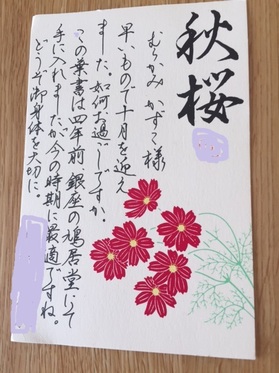 秋桜
むらかみ かずこ 様
早いもので十月を迎え
ました。如何お過しですか。
この葉書は四年前 銀座の鳩居堂にて
手に入れましたが今の時期に最適ですね。
どうぞ御身体を大切に。